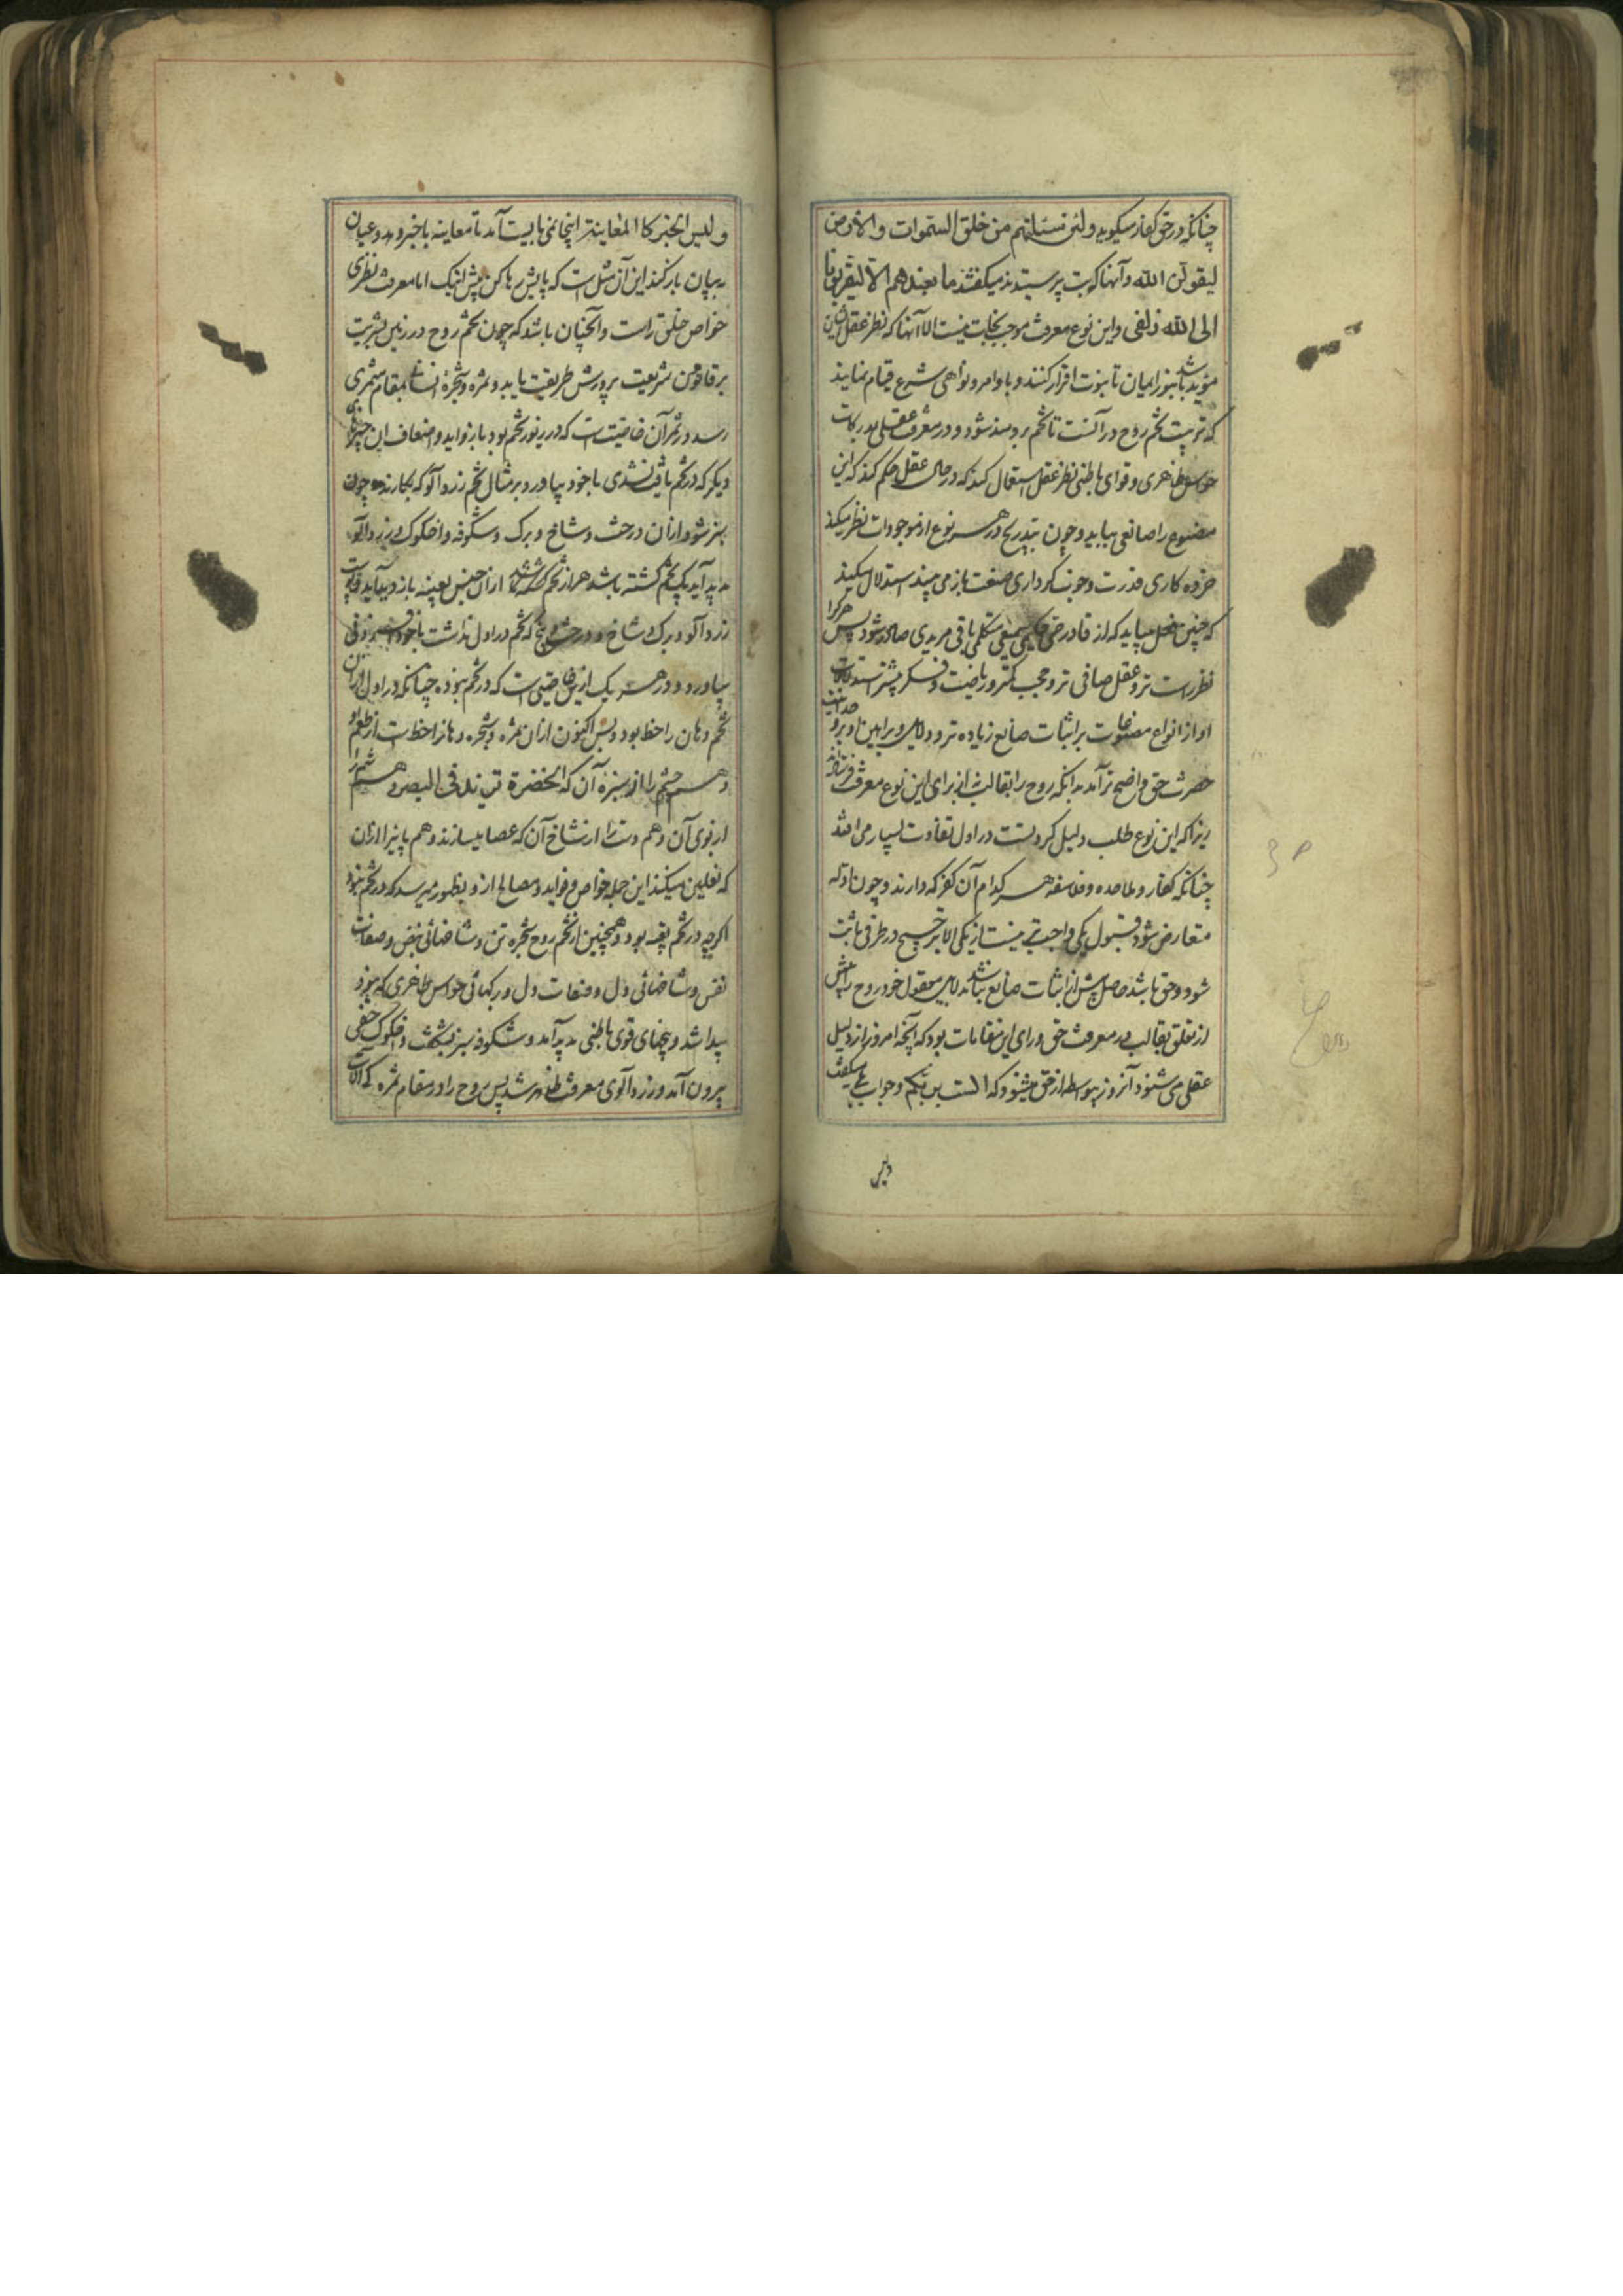 چنانکه در حق کفار میگوید ولئن سئلتهم من خلق السموات والارض
لیقولن الله وآنها که بت پرستیدند میگفتند ما نعبدهم الا لیقربونا
الی الله زلفی واین نوع معرفت موجب نجات نیست الا آنها که نظر عقل ایشان
مؤید باشد بنور ایمان تا بنبوت اقرار کنند وباوامر ونواهی شرع قیام نمایند
که تربیت تخم روح در آنست تا تخم برومند شود ودر معرفت عقلی مدرکات
حواس ظاهری وقوای باطنی نظر عقل استعمال کند که در حال عقل حکم کند که این
مصنوع را صانعی بباید وچون بتدریج در هر نوع از موجودات نظر میکند
خرده کاری قدرت وخوب کرداری صنعت باز می بیند استدلال میکند
که چنین فعل بباید که از قادر حی حکیمی سمیعی متکلمی باقی مریدی صادر شود پس هرکرا
نظر راست تر وعقل صافی تر وحجب کمتر وریاضت وفکر بیشتر استدلالات
او از انواع مصنوعات بر اثبات صانع زیاده تر ودلایل وبراهین او بر وحدانیت
حضرت حق واضح تر آمد بدانکه روح را بقالب نه از برای این نوع معرفت فرستادند
زیرا که این نوع طلب دلیل کردنست در اول تفاوت بسیار می افتد
چنانکه کفار وملاحده وفلاسفه هر کدام آن کفر که دارند وچون ادله
متعارض شود قبول یکی واجب تر نیست از یکی الا بترجیح در طرفی ثابت
شود وحق باشد حاصل پیش از اثبات صانع نباشد بدلایل معقول خود روح را پیش
از تعلق بقالب در معرفت حق ورای این مقامات بود که آنچه امروز از دلیل
عقل می شنود آنروز بیواسطه از حق میشنود که الست بربکم وجواب بلی میگفت
ولیس
ولیس الخبر کالمعاینة اینجا نمی بایست آمد تا معاینه باخبر وبد وعیان
به بیان باز کند این آن مثل است که پایش رها کن پیش اینک اما معرفت نظری
خواص خلق راست وآنچنان باشد که چون تخم روح در زمین بشریت
بر قانون شریعت پرورش طریقت یابد وثمره وشجرهٔ انسانی بمقام مثمری
رسد در ثمر آن خاصیت است که در بذور تخم بود با زواید واضعاف این چیزهای
دیگر که در تخم یافت نشدی با خود بیاورد بر مثال تخم زردآلو که بکارند چون
سبز شود ازان درخت وشاخ وبرک وشکوفه واخکوک وزردآلو
پدید آید یک تخم کشته باشد هزار تخم کشته شد ازان جنس بعینه باز دید آید وپوست
زردآلو وبرک وشاخ ودرخت وبیخ که تخم در اول نداشت با خود افزونی
بیاورد ودر هر یک ازین خاصیتی است که در تخم نبوده چنانکه در اول ازان
تخم دهان را حظ بود وبس اکنون ازان ثمره وشجره دهانرا حظ است از طعم او
وهم چشم را از سبزهٔ آن که الخضرة تزید فی البصر وهم مشام را
از بوی آن وهم دست را از شاخ آن که عصا میسازند وهم پایرا ازان
که نعلین میکنند این جمله خواص وفواید ومصالح ازو بظهور میرسد که در تخم نبود
اگرچه در تخم تعبیه بود وهمچنین از تخم روح شجره تن وشاخهائی نفس وصفات
نفس وشاخهائی دل وصفات دل وبرکهائی حواس ظاهری که بود
پیدا شد وبیخهای قوی باطنی پدید آمد وشکوفه سبز بشکفت واخکوک خفی
بیرون آمد وزردآلوی معرفت ظاهر شد پس روح را در مقام ثمره که آلات